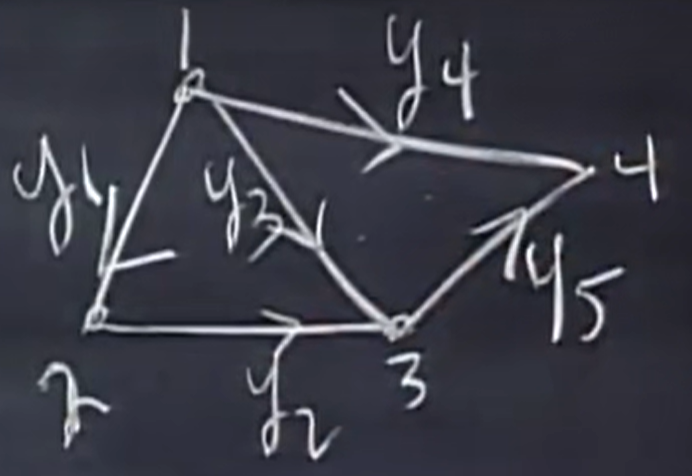 1
y4
4
y1
y3
y5
2
y2
3